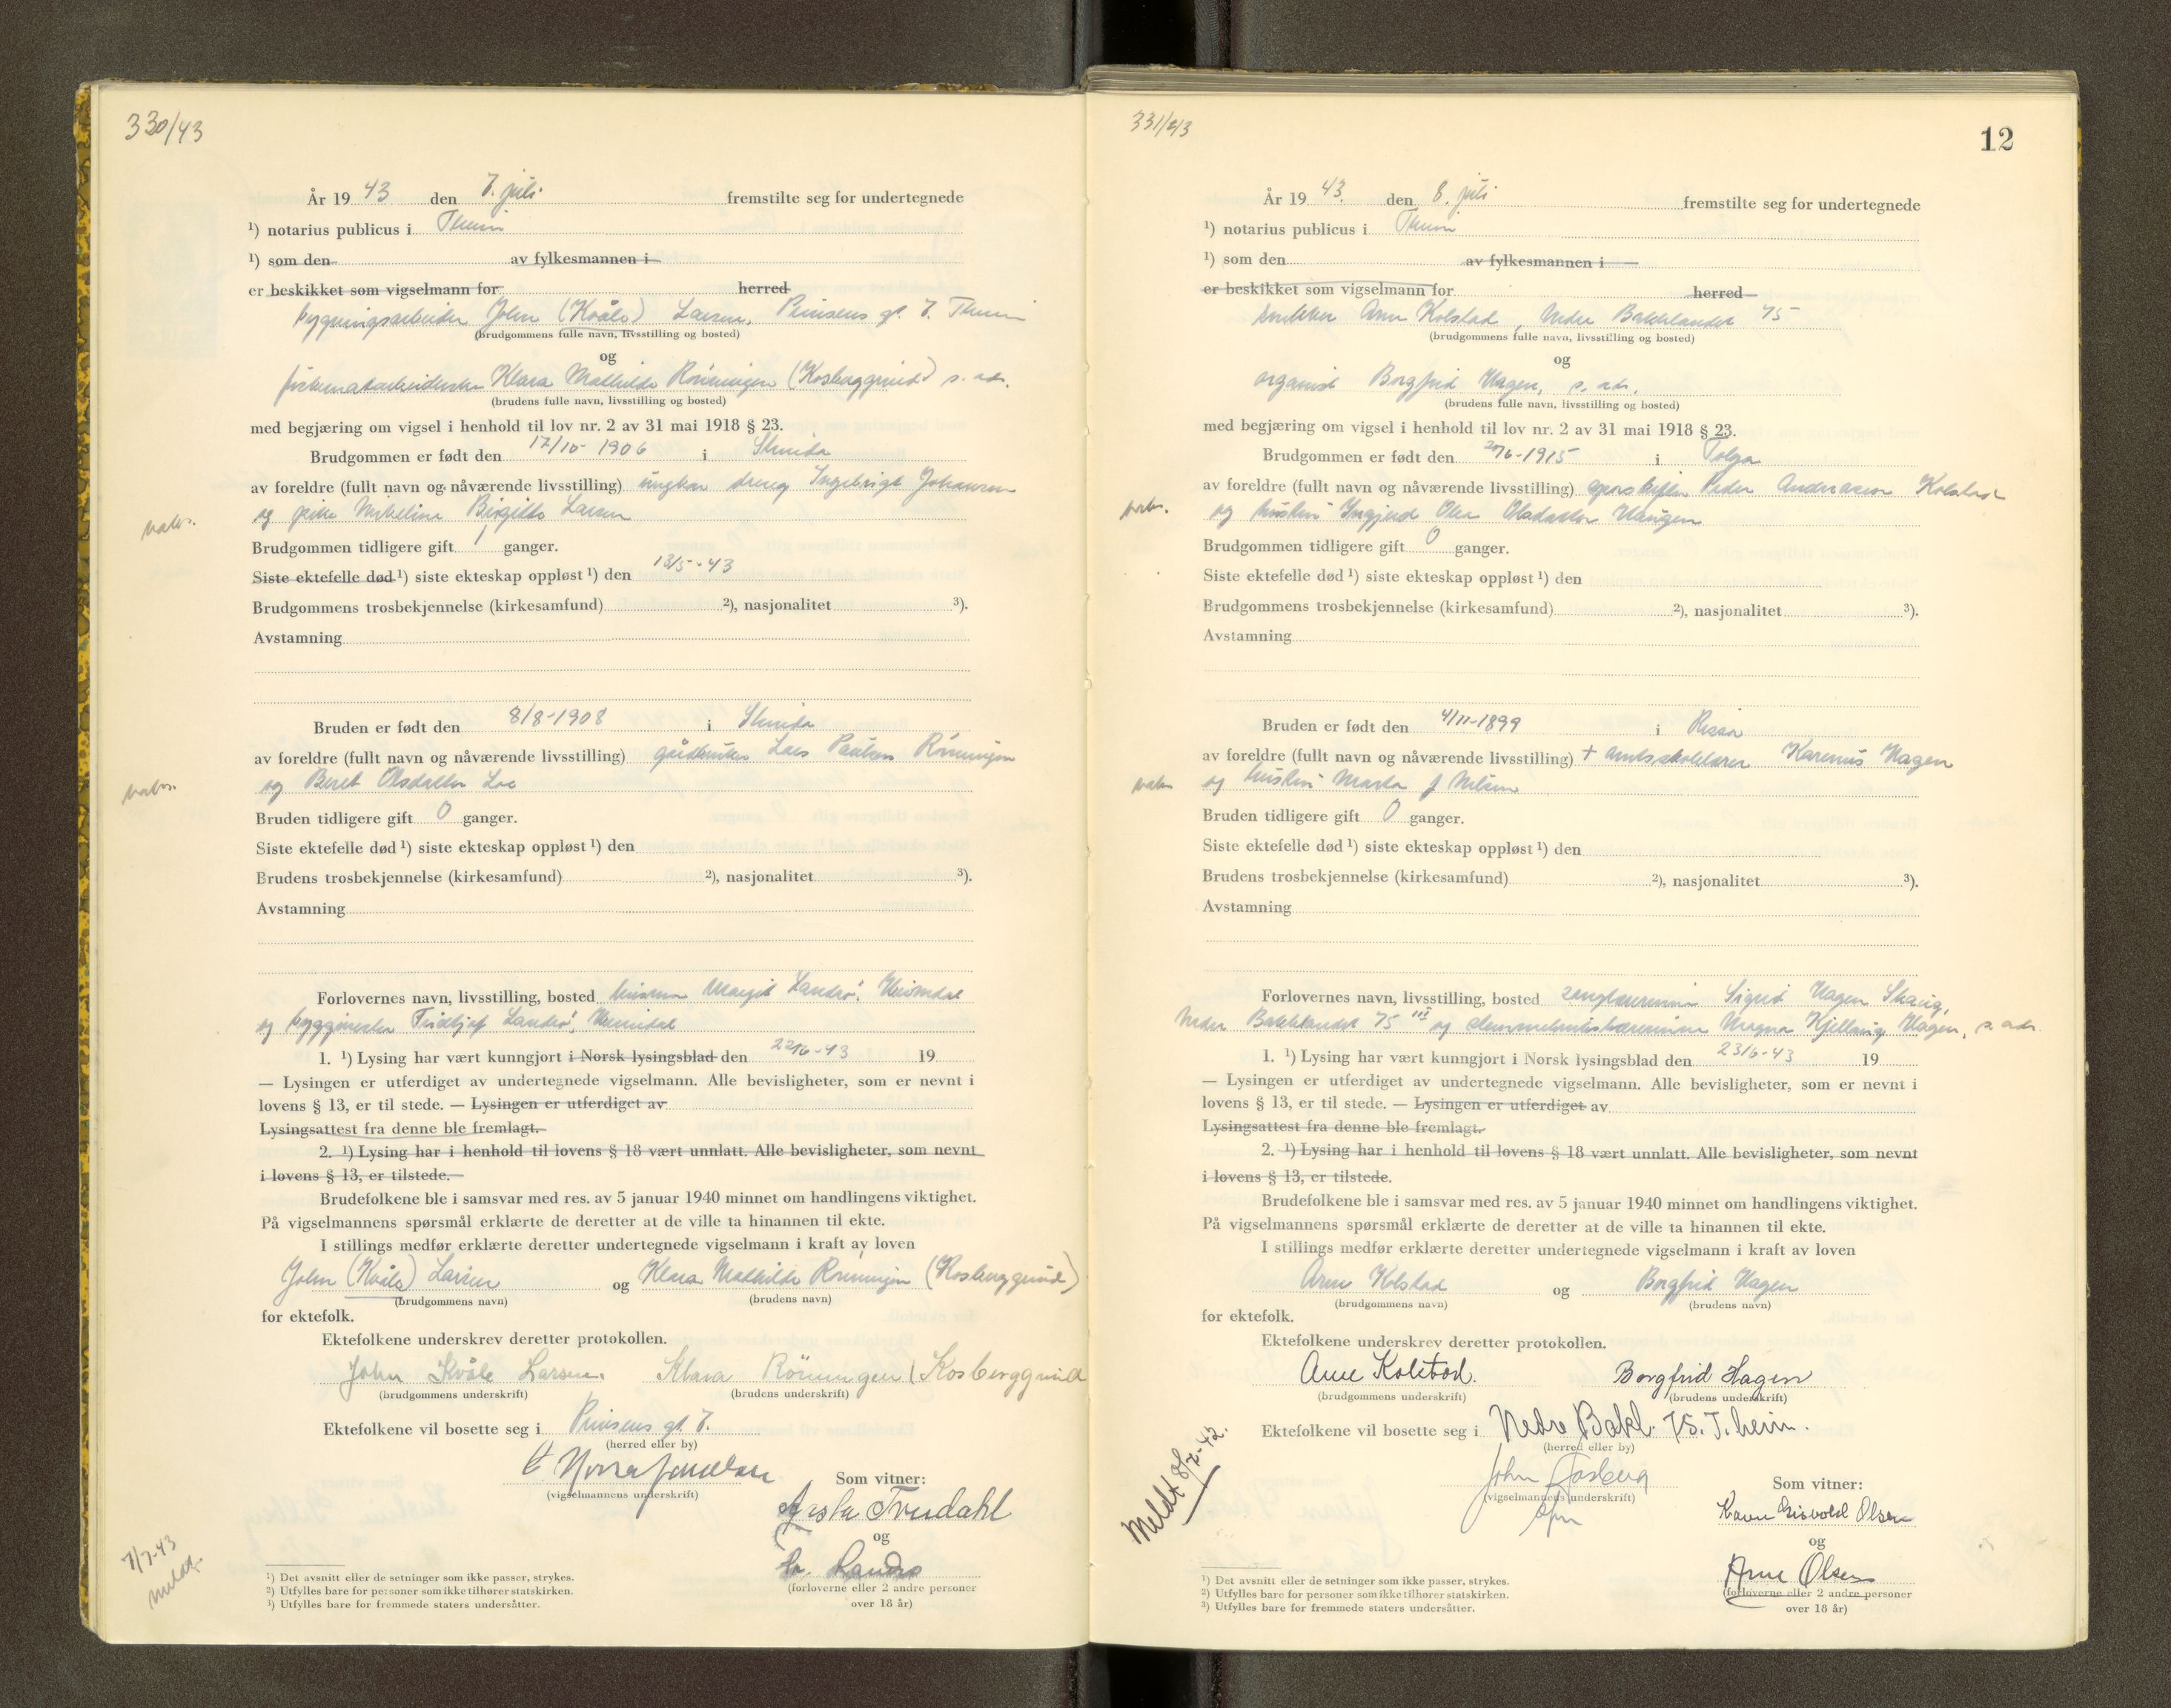 330/43
År 19 43 den 7. juli fremstilte seg for undertegnede
¹) notarius publicus i Theim
¹) som den av fylkesmannen i
er beskikket som vigselmann for herred
bygningsarbeider John (Kvåle) Larsen, Prinsens gt. 7. Theim
(brudgommens fulle navn, livsstilling og bosted)
og
Klara Mathilde Rönningen (Kosberggrind) s. adr.
(brudens fulle navn, livsstilling og bosted)
med begjæring om vigsel i henhold til lov nr. 2 av 31 mai 1918 § 23.
Brudgommen er født den 17/10-1906 i Strinda
av foreldre (fullt navn og nåværende livsstilling) ungkar dreng Ingebrigt Johansen
og pike Birgitte Larsen
Brudgommen tidligere gift 1 ganger.
Siste ektefelle død ¹) siste ekteskap oppløst ¹) den 13/5-43
Brudgommens trosbekjennelse (kirkesamfund) ²), nasjonalitet ³).
Avstamning
Bruden er født den 8/8-1908 i Strinda
av foreldre (fullt navn og nåværende livsstilling) gårdbruker Lars Paulsen Rönningen
og Beret Olsdatter Loe
Bruden tidligere gift 0 ganger.
Siste ektefelle død ¹) siste ekteskap oppløst ¹) den
Brudens trosbekjennelse (kirkesamfund) ²), nasjonalitet ³).
Avstamning
Forlovernes navn, livsstilling, bosted husmor Margit Landrö, Heimdal
og byggmester Fridtjof Landrö, Heimdal
1. ¹) Lysing har vært kunngjort i Norsk lysingsblad den 22/6-43 19
— Lysingen er utferdiget av undertegnede vigselmann. Alle bevisligheter, som er nevnt i
lovens § 13, er til stede. — Lysingen er utferdiget av
Lysingsattest fra denne ble fremlagt.
2. ¹) Lysing har i henhold til lovens § 18 vært unnlatt. Alle bevisligheter, som nevnt
i lovens § 13, er tilstede.
Brudefolkene ble i samsvar med res. av 5 januar 1940 minnet om handlingens viktighet.
På vigselmannens spørsmål erklærte de deretter at de ville ta hinannen til ekte.
I stillings medfør erklærte deretter undertegnede vigselmann i kraft av loven
John (Kvåle) Larsen og Klara Mathilde Rönningen (Kosberggrind)
(brudgommens navn) (brudens navn)
for ektefolk.
Ektefolkene underskrev deretter protokollen.
John Kvåle Larsen. Klara Rönningen (Kosberggrind
(brudgommens underskrift) (brudens underskrift)
Ektefolkene vil bosette seg i Prinsens gt. 7.
(herred eller by)
(vigselmannens underskrift)
Som vitner:
Trudahl
og
Landrø
(forloverne eller 2 andre personer
over 18 år)
7/7-43
meldt.
¹) Det avsnitt eller de setninger som ikke passer, strykes.
²) Utfylles bare for personer som ikke tilhører statskirken.
³) Utfylles bare for fremmede staters undersåtter.
331/43
12
År 19 43. den 8. juli fremstilte seg for undertegnede
¹) notarius publicus i Theim
¹) som den av fylkesmannen i
er beskikket som vigselmann for herred
snekker Arne Kolstad, Nedre Bakklandet 75
(brudgommens fulle navn, livsstilling og bosted)
og
organist Borgfrid Hagen, s. adr.
(brudens fulle navn, livsstilling og bosted)
med begjæring om vigsel i henhold til lov nr. 2 av 31 mai 1918 § 23.
Brudgommen er født den 20/6-1915 i Tolga
av foreldre (fullt navn og nåværende livsstilling) Peder Andreasen Kolstad
og hustru Ingjerd Olea Haugen
Brudgommen tidligere gift 0 ganger.
Siste ektefelle død ¹) siste ekteskap oppløst ¹) den
Brudgommens trosbekjennelse (kirkesamfund) ²), nasjonalitet ³).
Avstamning
Bruden er født den 4/11-1899 i Rissa
av foreldre (fullt navn og nåværende livsstilling) + amtsskolelærer Karenus Hagen
og hustru Marta J Nilsen
Bruden tidligere gift 0 ganger.
Siste ektefelle død ¹) siste ekteskap oppløst ¹) den
Brudens trosbekjennelse (kirkesamfund) ²), nasjonalitet ³).
Avstamning
Forlovernes navn, livsstilling, bosted sanglærerinne Sigrid Hagen Skavig,
Nedre Bakklandet 75 III og Magna Kjellaug Hagen, s. adr.
1. ¹) Lysing har vært kunngjort i Norsk lysingsblad den 23/6-43 19
— Lysingen er utferdiget av undertegnede vigselmann. Alle bevisligheter, som er nevnt i
lovens § 13, er til stede. — Lysingen er utferdiget av
Lysingsattest fra denne ble fremlagt.
2. ¹) Lysing har i henhold til lovens § 18 vært unnlatt. Alle bevisligheter, som nevnt
i lovens § 13, er tilstede.
Brudefolkene ble i samsvar med res. av 5 januar 1940 minnet om handlingens viktighet.
På vigselmannens spørsmål erklærte de deretter at de ville ta hinannen til ekte.
I stillings medfør erklærte deretter undertegnede vigselmann i kraft av loven
Arne Kolstad og Borgfrid Hagen
(brudgommens navn) (brudens navn)
for ektefolk.
Ektefolkene underskrev deretter protokollen.
Arne Kolstad. Borgfrid Hagen
(brudgommens underskrift) (brudens underskrift)
Ektefolkene vil bosette seg i Nedre Bakl. 75. T.heim.
(herred eller by)
John Aasberg
(vigselmannens underskrift)
Som vitner:
Karen Eisvold Olsen
og
Arne Olsen
(forloverne eller 2 andre personer
over 18 år)
Meldt 8/7-43.
¹) Det avsnitt eller de setninger som ikke passer, strykes.
²) Utfylles bare for personer som ikke tilhører statskirken.
³) Utfylles bare for fremmede staters undersåtter.